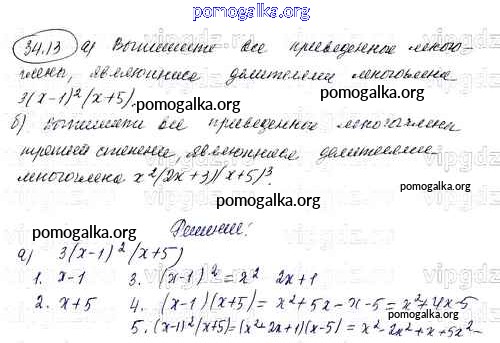 pomogalka.org
34.13 а) Выпишите все приведенное много-
члены, являющиеся делителями многочлена
3(x-1)²(x+5).
pomogalka.org
б) Выпишите все приведенное многочлены
третьей степени, являющиеся делителями
многочлена x²(2x+3)(x+5)³.
pomogalka.org
Решение:
pomogalka.org
а) 3(x-1)²(x+5)
1. x-1 3. (x-1)² = x² 2x+1
2. x+5 4. (x-1)(x+5) = x²+5x-x-5 = x²+4x-5
5. (x-1)²(x+5)=(x²+2x+1)(x-5) = x²-2x²+x+5x²-
pomogalka.org pomogalka.org